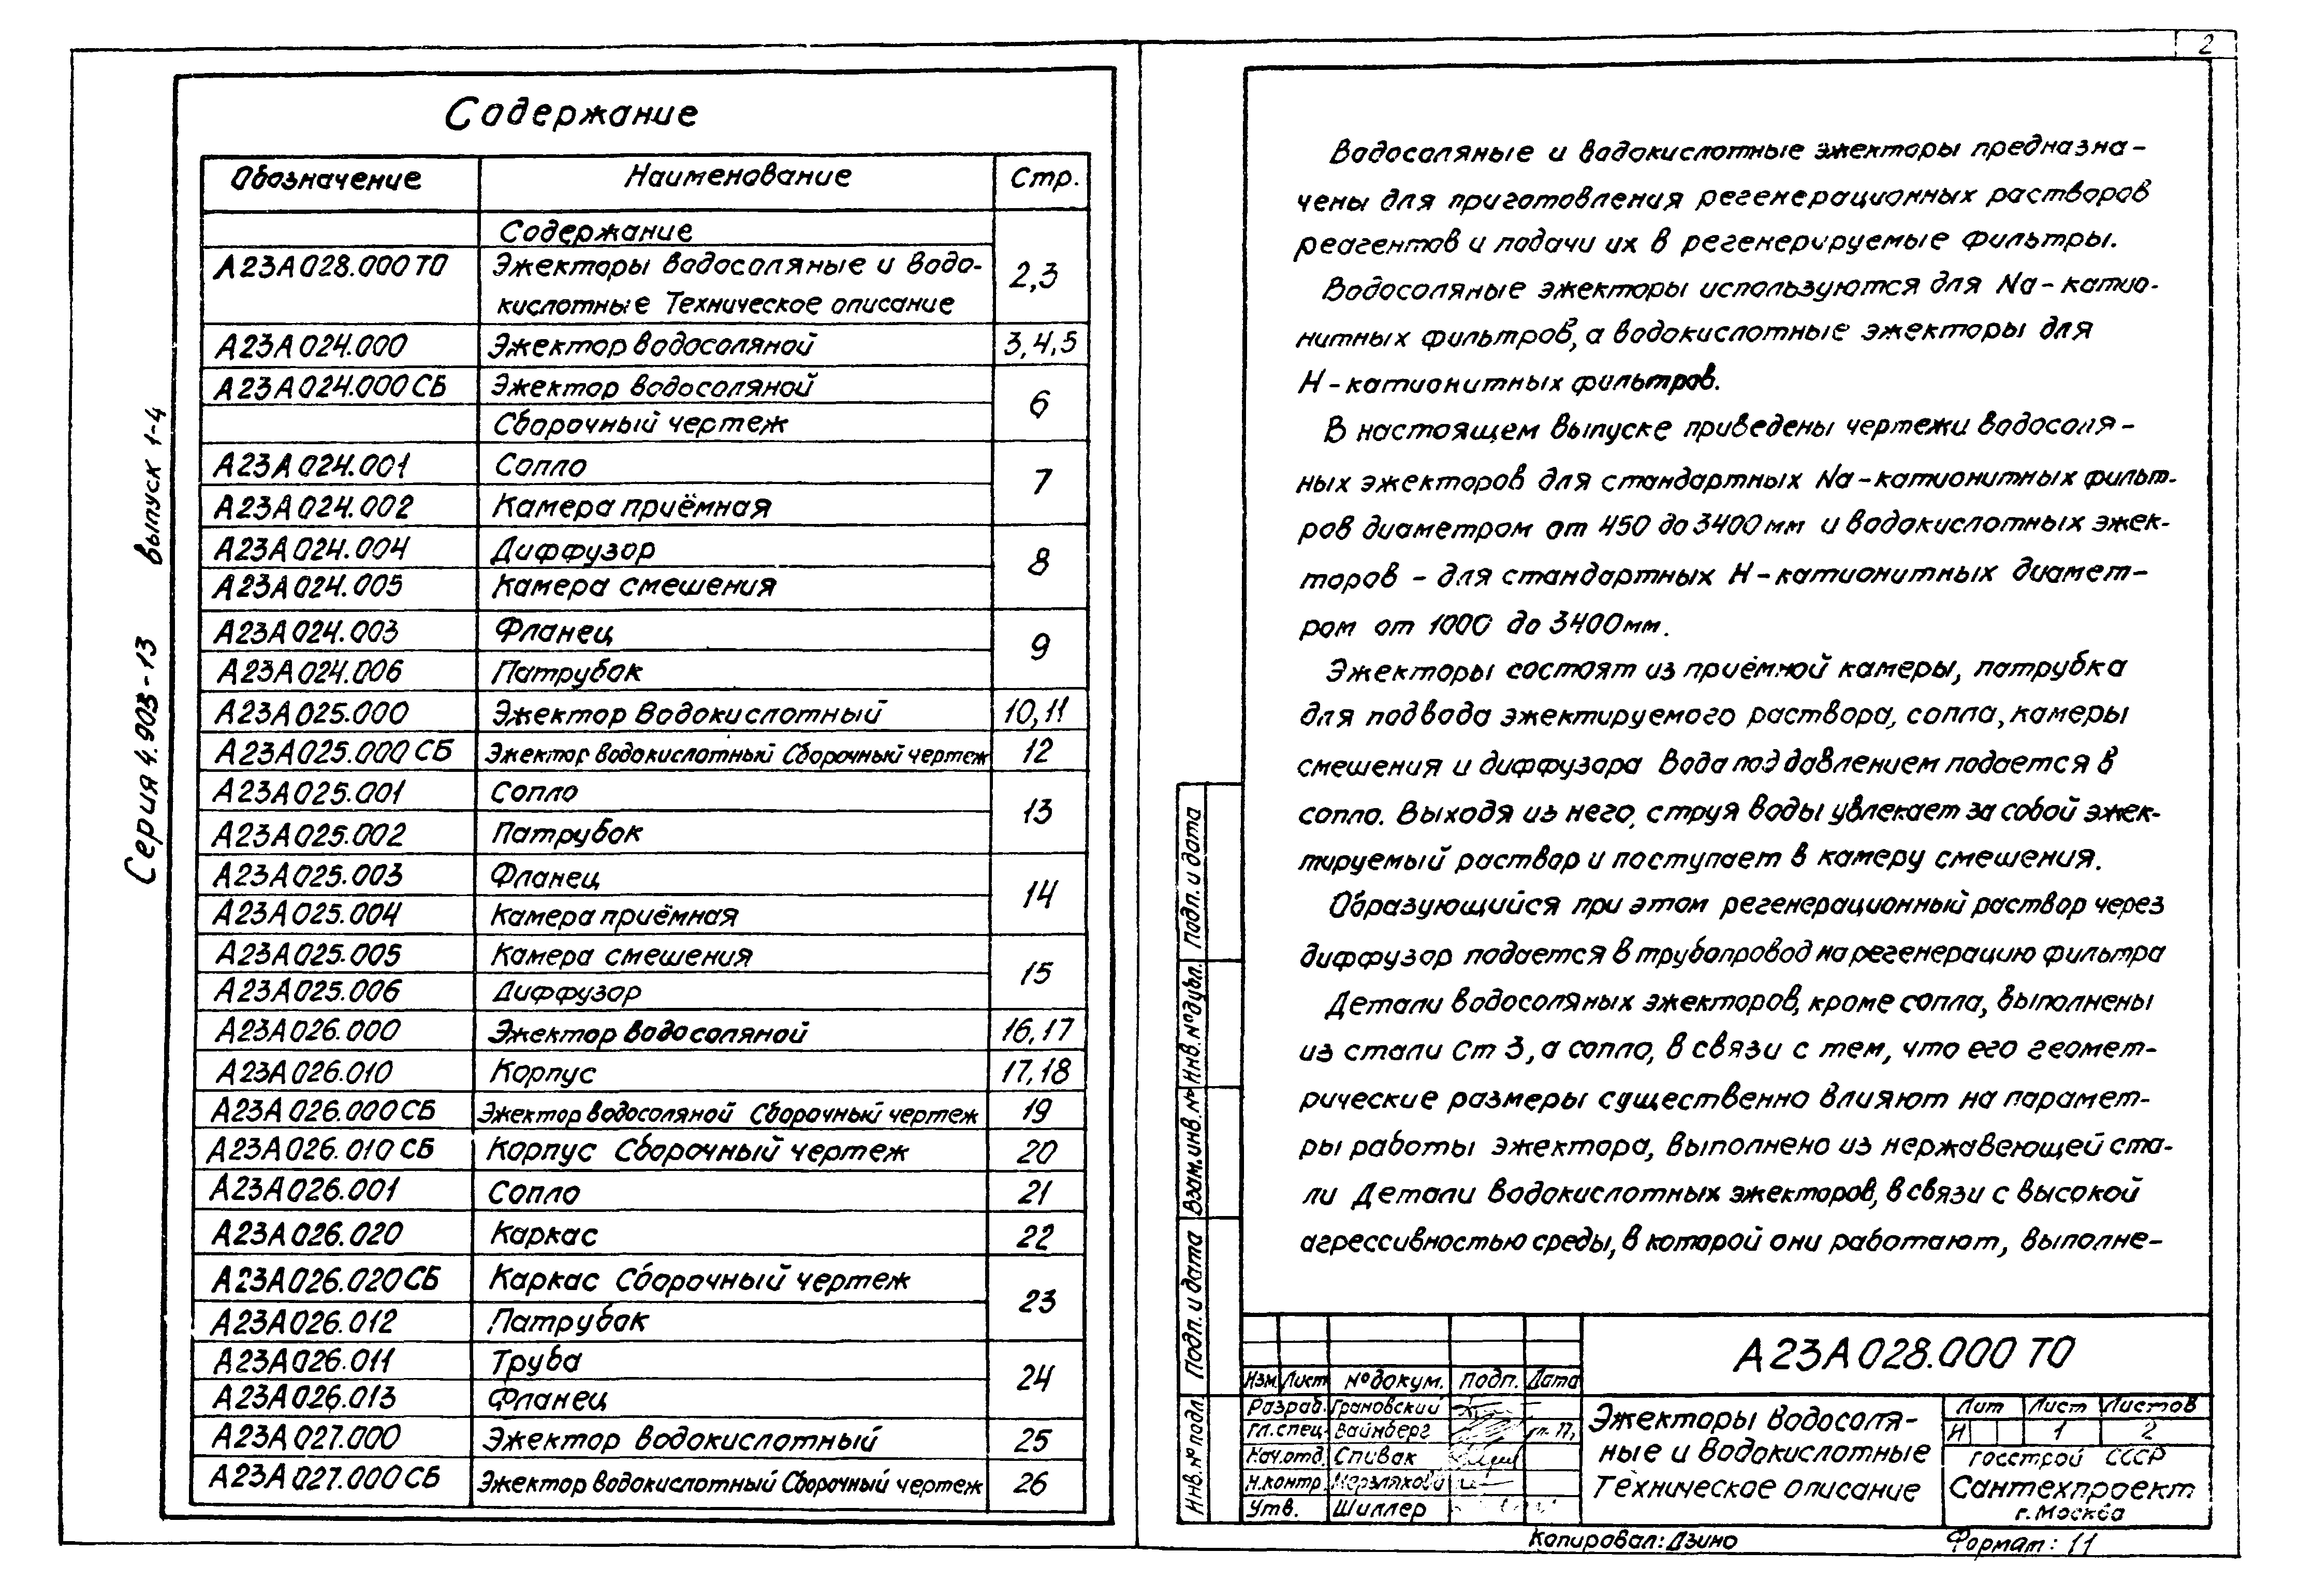 2
Серия 4.903-13 выпуск 1-4
Содержание
Обозначение Наименование Стр.
Содержание
А23А028.000 ТО Эжекторы водосоляные и водо-
кислотные Техническое описание 2,3
А23А024.000 Эжектор водосоляной 3,4,5
А23А024.000 СБ Эжектор водосоляной
Сборочный чертеж 6
А23А024.001 Сопло
А23А024.002 Камера приёмная 7
А23А024.004 Диффузор
А23А024.005 Камера смешения 8
А23А024.003 Фланец
А23А024.006 Патрубок 9
А23А025.000 Эжектор Водокислотный 10,11
А23А025.000 СБ Эжектор водокислотный Сборочный чертеж 12
А23А025.001 Сопло
А23А025.002 Патрубок 13
А23А025.003 Фланец
А23А025.004 Камера приёмная 14
А23А025.005 Камера смешения
А23А025.006 Диффузор 15
А23А026.000 Эжектор водосоляной 16,17
А23А026.010 Корпус 17,18
А23А026.000 СБ Эжектор водосоляной Сборочный чертеж 19
А23А026.010 СБ Корпус Сборочный чертеж 20
А23А026.001 Сопло 21
А23А026.020 Каркас 22
А23А026.020 СБ Каркас Сборочный чертеж
А23А026.012 Патрубок 23
А23А026.011 Труба
А23А026.013 Фланец 24
А23А027.000 Эжектор водокислотный 25
А23А027.000 СБ Эжектор водокислотный Сборочный чертеж 26
Водосоляные и водокислотные эжекторы предназна-
чены для приготовления регенерационных растворов
реагентов и подачи их в регенерируемые фильтры.
Водосоляные эжекторы используются для Na-катио-
нитных фильтров, а водокислотные эжекторы для
Н-катионитных фильтров.
В настоящем выпуске приведены чертежи водосоля-
ных эжекторов для стандартных Na-катионитных фильт-
ров диаметром от 450 до 3400 мм и водокислотных эжек-
торов - для стандартных Н-катионитных диамет-
ром от 1000 до 3400 мм.
Эжекторы состоят из приёмной камеры, патрубка
для подвода эжектируемого раствора, сопла, камеры
смешения и диффузора Вода под давлением подается в
сопло. Выходя из него, струя воды увлекает за собой эжек-
тируемый раствор и поступает в камеру смешения.
Образующийся при этом регенерационный раствор через
диффузор подается в трубопровод на регенерацию фильтра
Детали водосоляных эжекторов, кроме сопла, выполнены
из стали Ст 3, а сопло, в связи с тем, что его геомет-
рические размеры существенно влияют на парамет-
ры работы эжектора, выполнено из нержавеющей ста-
ли Детали водокислотных эжекторов, в связи с высокой
агрессивностью среды, в которой они работают, выполне-
Подп. и дата
Инв. № дубл.
Взам. инв. №
Подп. и дата
Инв. № подл.
А23А028.000 ТО
Изм. Лист № докум. Подп. Дата
Разраб. Грановский
Гл. спец. Вайнберг
Нач. отд. Спивак
Н. контр.
Утв. Шиллер
Эжекторы водосоля-
ные и водокислотные
Техническое описание
Лит Лист Листов
И 1 2
Госстрой СССР
Сантехпроект
г. Москва
Копировал: Дзино Формат: 11